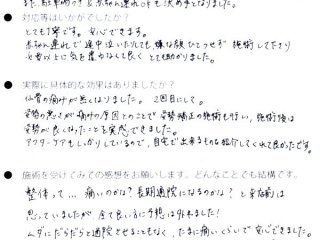 また、駐車場つき & 赤ちゃん連れOKも決め手となりました。
● 対応等はいかがでしたか？
とても丁寧です。安心できます。
赤ちゃん連れで途中泣いたりしても嫌な顔ひとつせず施術して下さり
必要以上に気を遣わなくて良くとても助かりました。
● 実際に具体的な効果はありましたか？
仙骨の痛みが無くなりました。2回目にして。
姿勢の悪さが痛みの原因とのことで姿勢矯正の施術も行い、施術後は
姿勢が良くなったことを実感できました。
アフターケアもしっかりしているので、自宅で出来るものも紹介してくれて良かったです。
● 施術を受けてみての感想をお願いします。どんなことでも結構です。
整体って... 痛いのかな？長期通院になるのかな？と来院前は
思っていましたが全て良い方に予想は外れました！
ムダにだらだらと通院させることもなく、たまに痛いくらいで安心できました。